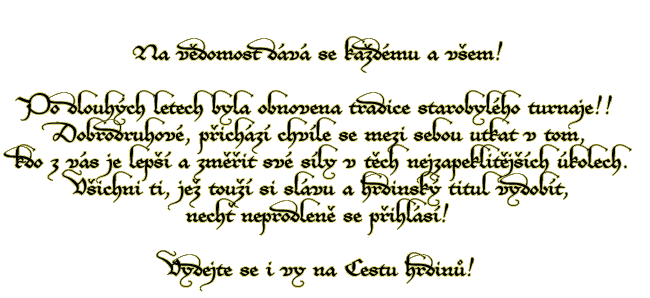 Na vědomost dává se každému a všem!
Po dlouhých letech byla obnovena tradice starobylého turnaje!!
Dobrodruhové, přichází chvíle se mezi sebou utkat v tom,
kdo z vás je lepší a změřit své síly v těch nejzapeklitějších úkolech.
Všichni ti, jež touží si slávu a hrdinský titul vydobít,
nechť neprodleně se přihlásí!
Vydejte se i vy na Cestu hrdinů!